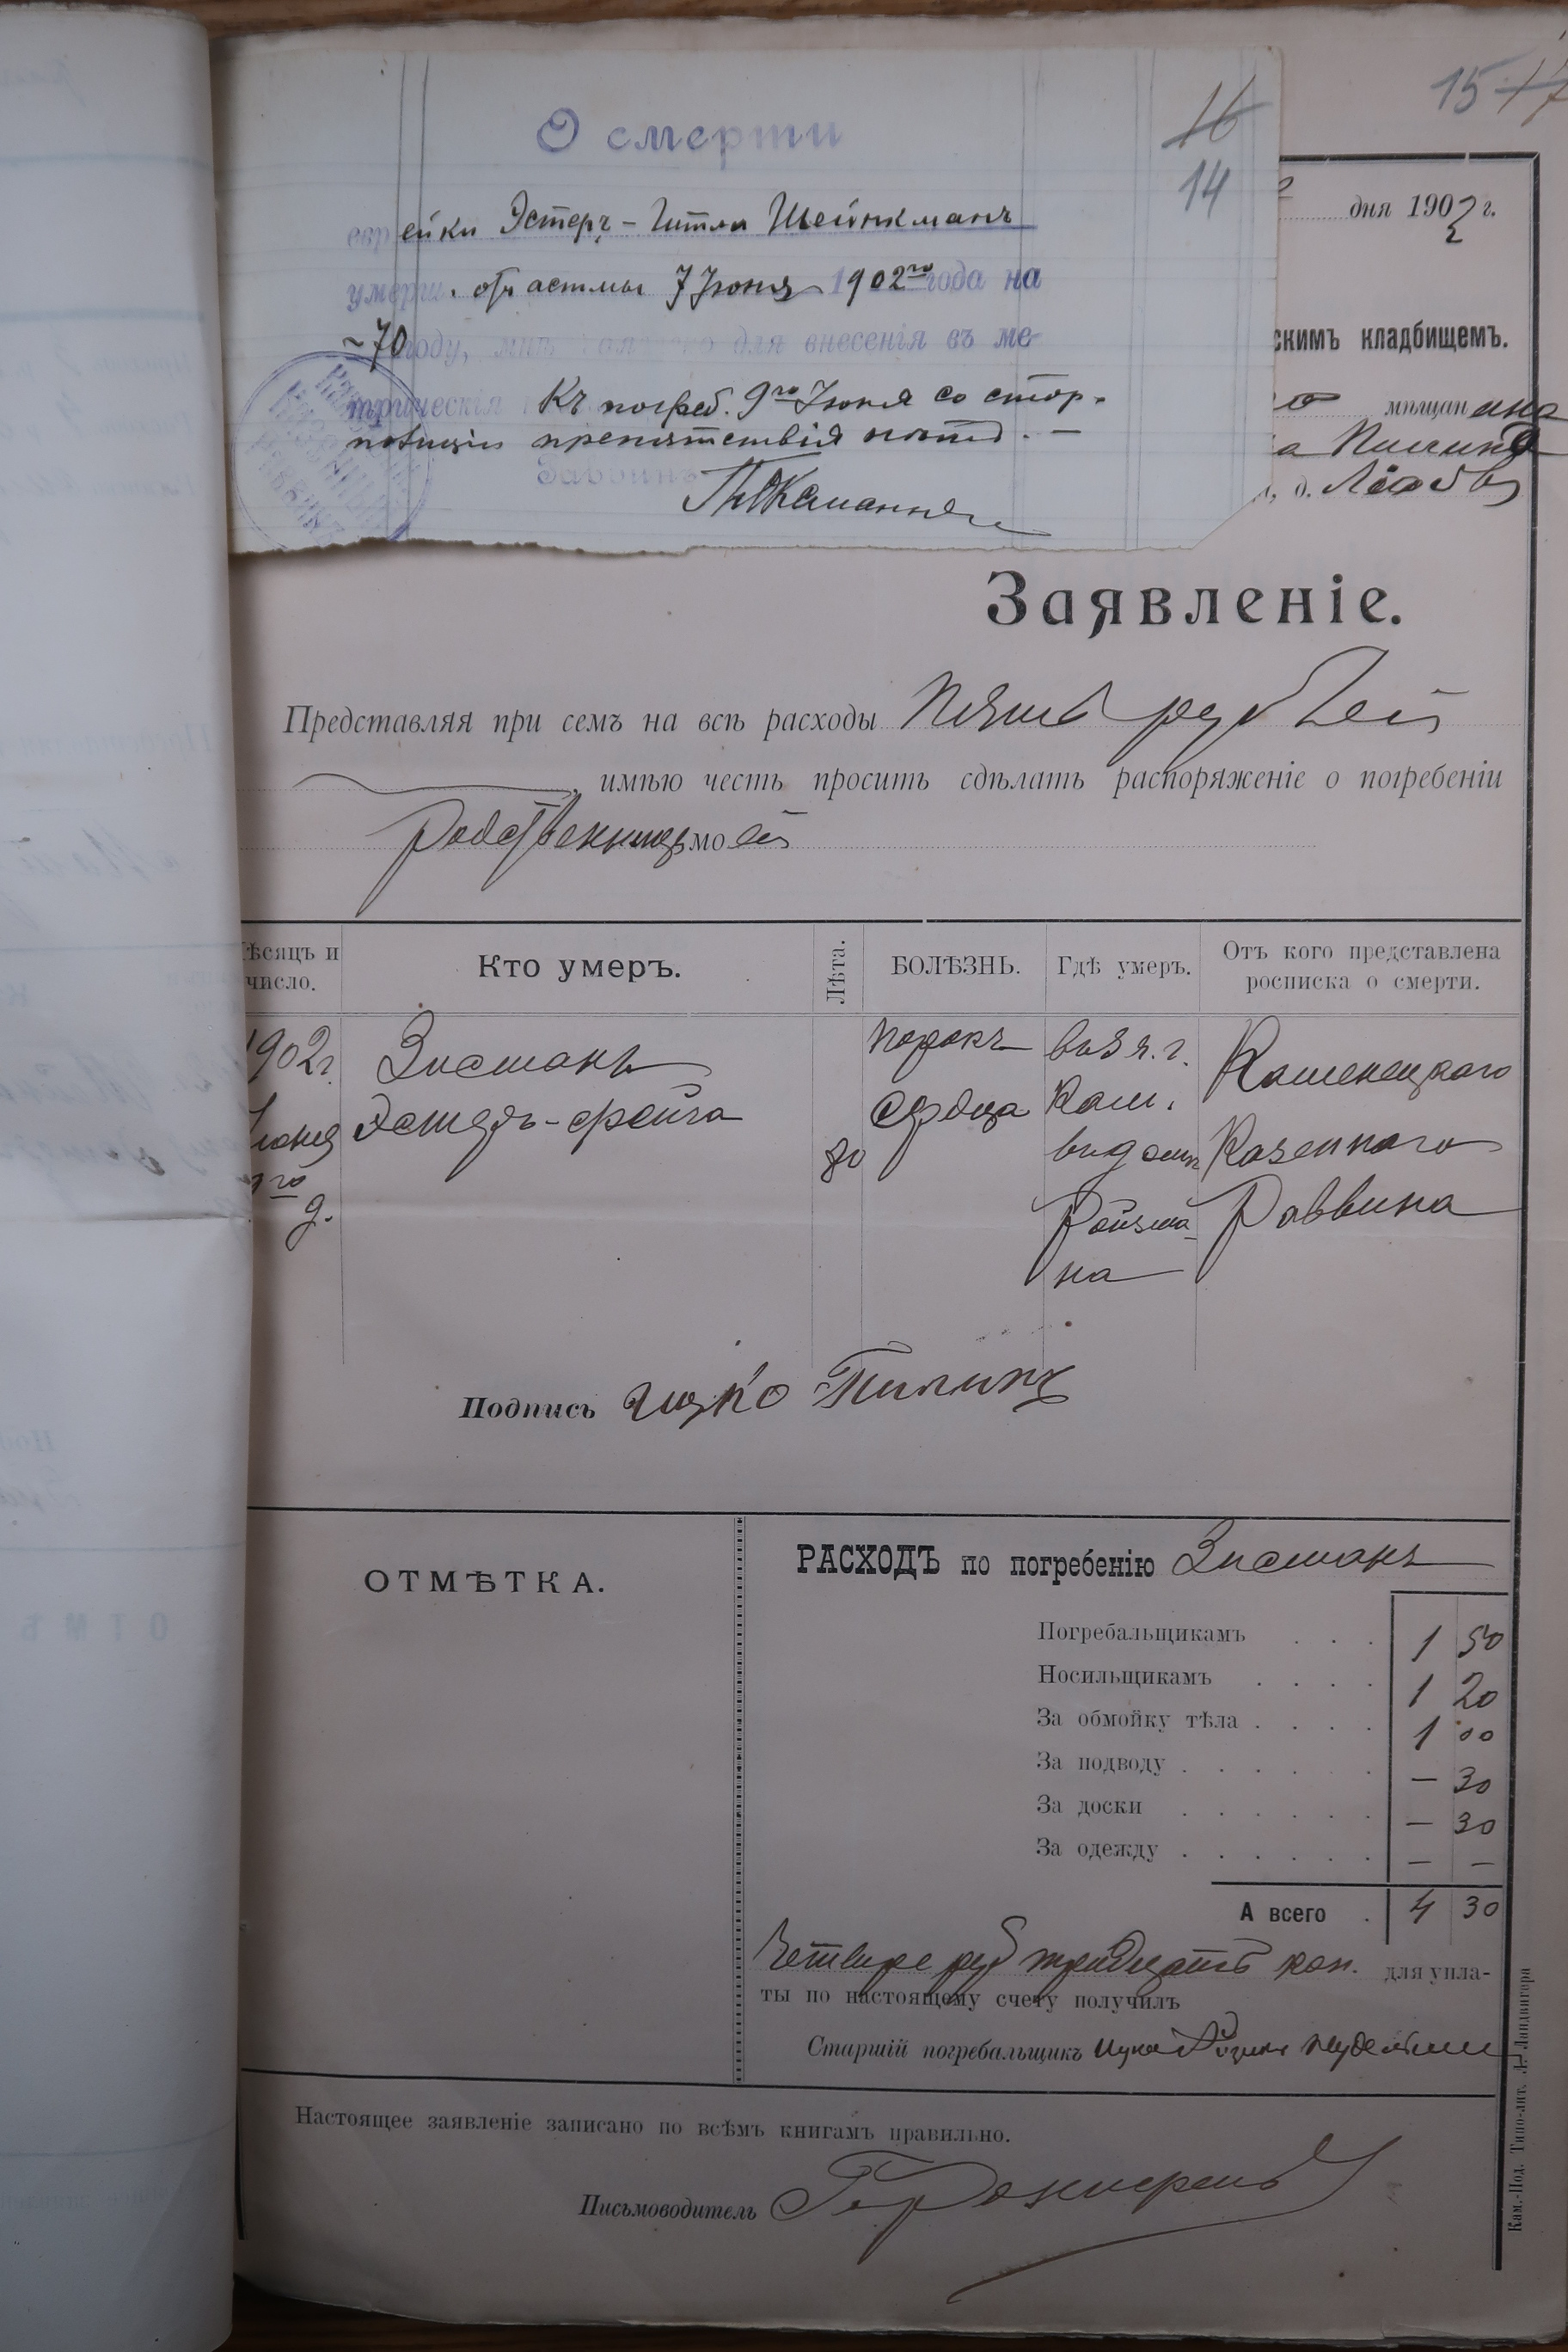 15 17
О смерти
16
14
еврейки Эстеръ-Гитля Шейнкманъ
умерш. отъ астмы 7 Июня 1902го года на
~70 году, мнѣ для внесенія въ ме-
трическія Къ погреб. 9го Июня со стор.
полиціи препятствія нѣтъ. —
Раввинъ
дня 1902 г.
скимъ кладбищемъ.
мѣщанина
а Пилина
д.
Заявленіе.
Представляя при семъ на всѣ расходы пять рублей
, имѣю честь просить сдѣлать распоряженіе о погребеніи
родственницы моей
Мѣсяцъ и число.
Кто умеръ.
Лѣта.
БОЛѢЗНЬ.
Гдѣ умеръ.
Отъ кого представлена росписка о смерти.
1902 г.
Июня
го
д.
Зисманъ
Эстеръ-Фейга
80
порокъ
сердца
Кам.
въ д
Ройзма-
на
Каменецкаго
Казеннаго
Раввина
Подпись Ицко Пилинъ
ОТМѢТКА.
РАСХОДЪ по погребенію Зисманъ
Погребальщикамъ . . . 1 50
Носильщикамъ . . . . 1 20
За обмойку тѣла . . . . 1 00
За подводу . . . . . — 30
За доски . . . . . . — 30
За одежду . . . . . . — —
А всего . 4 30
Четыре руб тридцать коп. для упла-
ты по настоящему счету получилъ
Старшій погребальщикъ
Настоящее заявленіе записано по всѣмъ книгамъ правильно.
Письмоводитель
Кам.-Под. Типо-лит. Л. Ландвигера